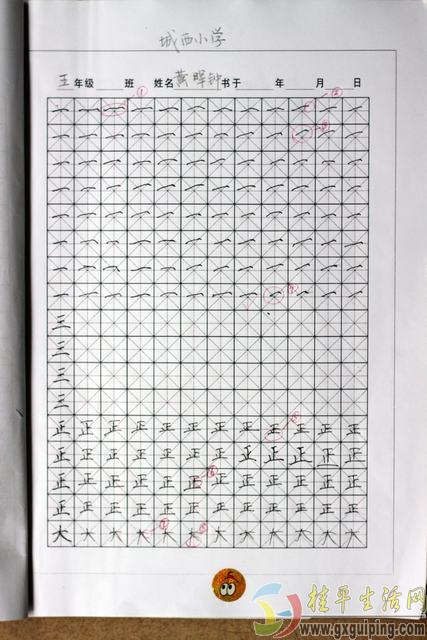 城西小学
五年级 班 姓名黄 钟书于 年 月 日
一一一一一一一一一一一一
一一一一一一一一一一一一
一一一一一一一一一一一一
一一一一一一一一一一一一
一一一一一一一一一一一一
一一一一一一一一一一一一
一一一一一一一一一一一一
一一一一一一一一一一一一
三
三
三
三
正正正正正正正正正正正正
正正正正正正正正正正正正
正正正正正正正正正正正正
正正正正正正正正正正正正
大大大大大大大大大大大大
桂平生活网
www.gxguiping.com